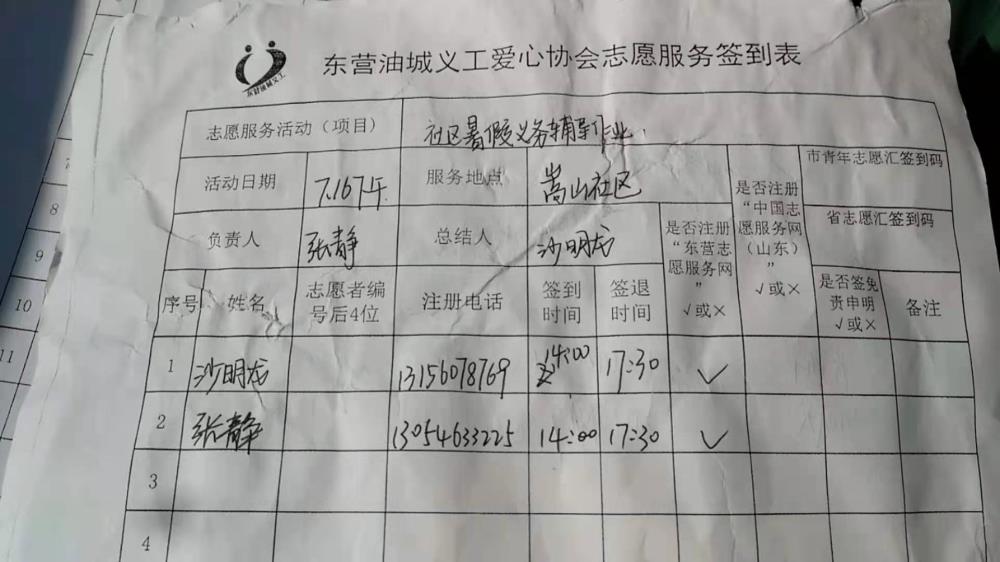 东营油城义工
东营油城义工爱心协会志愿服务签到表
志愿服务活动（项目） 社区暑假义务辅导作业
活动日期 7.16下午 服务地点 嵩山社区 是否注册“中国志愿服务网（山东）” √或× 市青年志愿汇签到码
负责人 张静 总结人 沙明龙 是否注册“东营志愿服务网” √或× 省志愿汇签到码
序号 姓名 志愿者编号后4位 注册电话 签到时间 签退时间 是否签免责申明 √或× 备注
1 沙明龙 13156078769 14:00 17:30 √
2 张静 13054633225 14:00 17:30 √
3
4
8
9
10
11